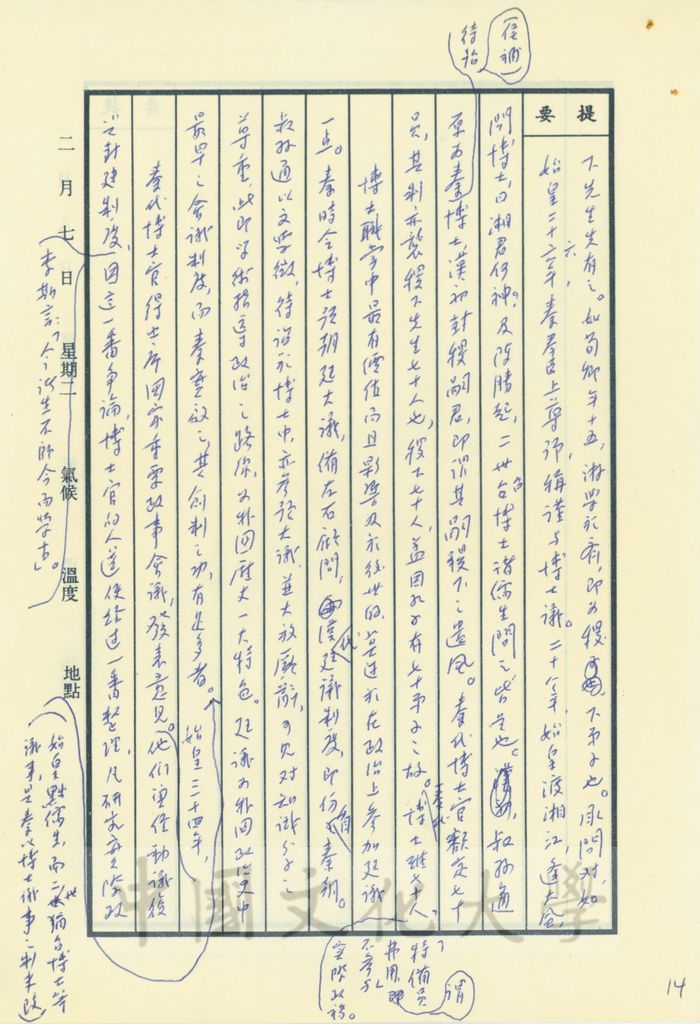 提要
下先生先有之。如荀卿年十五,游學於齊,即為稷下弟子也。承問對,如
始皇二十六年,秦羣臣上尊號,稱謹與博士議。二十八年,始皇渡湘江,逢大風,
問博士曰湘君何神?及陳勝起,二世召博士諸儒生問之皆是也。叔孫通
原為秦博士,漢初封稷嗣君,即謂其嗣稷下之遺風。秦代博士官額定七十
(後補)
待詔
員,其制亦襲稷下先生七十人也,稷下七十人,蓋因孔子有七十弟子之故。秦代博士雖七十人
謂
特備員
弗用,即
不參與
實際政務。
博士職掌中最有價值而且影響及於後世的,莫過於在政治上參加廷議
一點。秦時令博士預朝廷大議,備左右顧問,漢代廷議制度,即仿自秦朝。
叔孫通以文學徵,待詔於博士中,亦參預大議,並大放厥辭,可見對知識分子之
尊重,此即學術指導政治之路線,為我國歷史一大特色。廷議為我國政治史中
最早之會議制度,而秦實啟之,其創制之功,有足多者。始皇三十四年,
秦代博士官得士於國家重要政事會議,發表意見。他們更僅動議復
興封建制度,因這一番爭論,博士官的人選便經過一番整理,凡研究實際政
李斯說:「今諸生不師今而學古」。
(始皇黜儒生,而二世猶召博士等
議事,是秦以博士議事之制未改)
二月七日 星期二 氣候 溫度 地點
中國文化大學
14